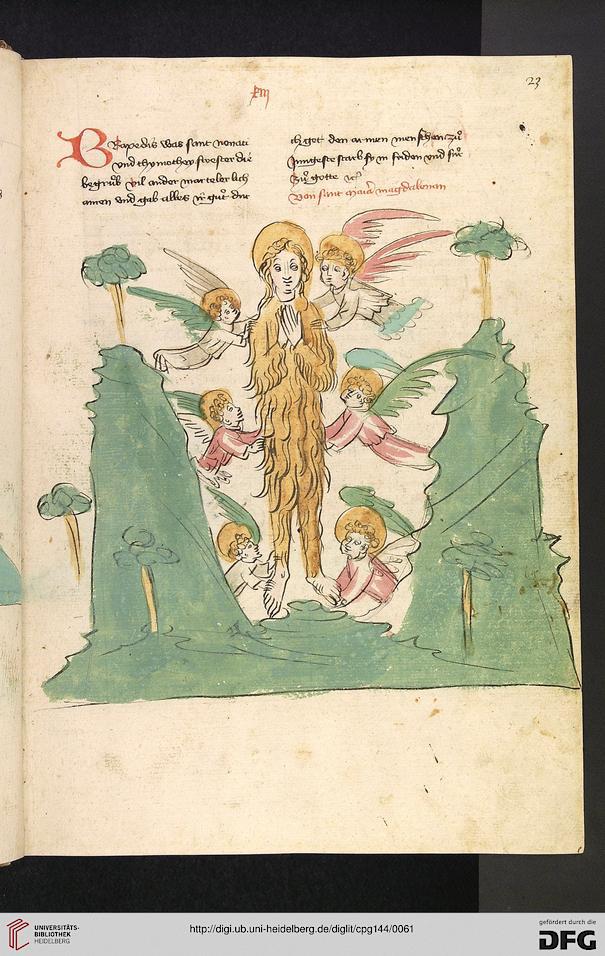 23
xiij
Braxedis was sant
vnd thymothey swester die
begrůb vil ander marteler lich
amen vnd gab alles ir gůt dur
ch got den armen menschen zů
Jungeste starb sy in friden vnd fůr
zů gotte
Von sant maria magdalenan
UNIVERSITÄTS-
BIBLIOTHEK
HEIDELBERG
http://digi.ub.uni-heidelberg.de/diglit/cpg144/0061
gefördert durch die
DFG